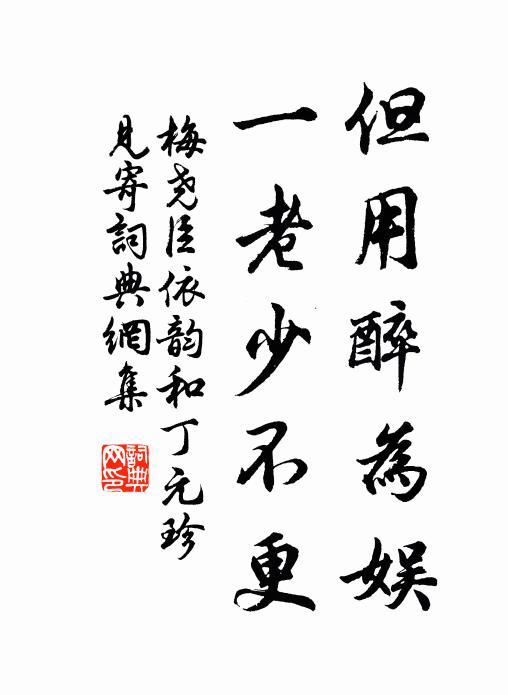 但用醉為娛
一老少不更
梅尧臣依韵和丁元珍
見寄詞典網集
詞典网印